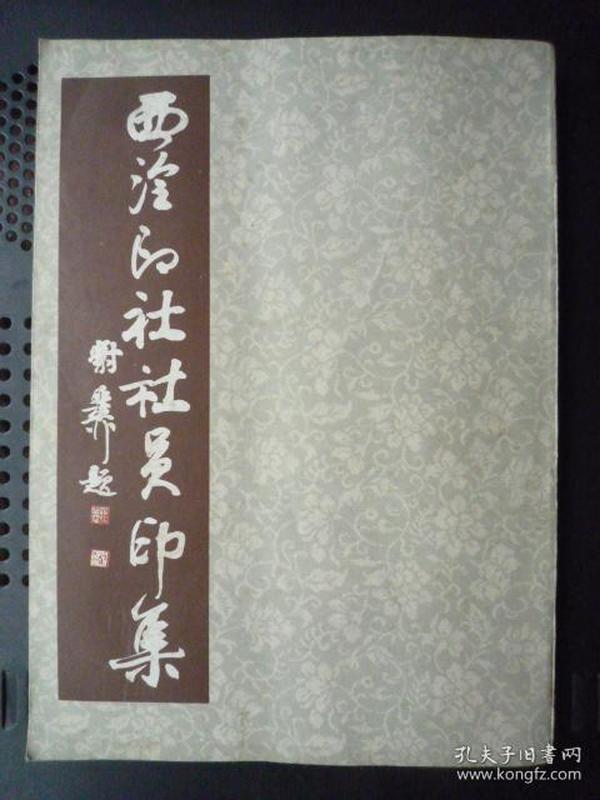 西泠印社社员印集
题
孔夫子旧书网
www.kongfz.com